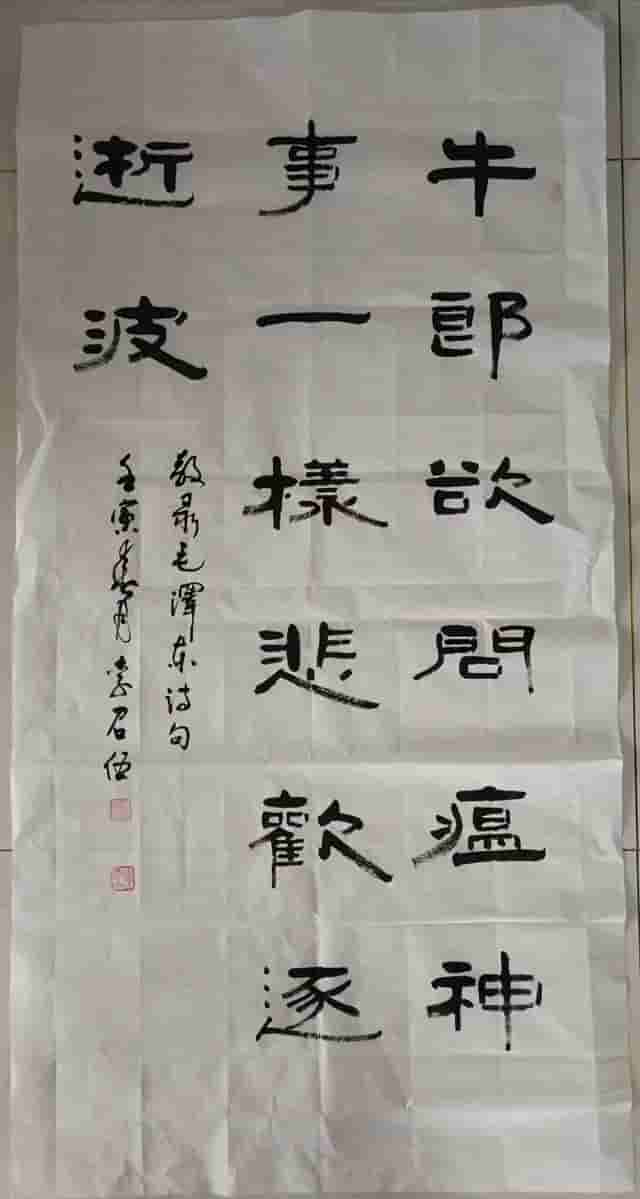 牛郎欲問瘟神
事一樣悲歡逐
逝波
敬录毛澤东诗句
壬寅春月李召伍